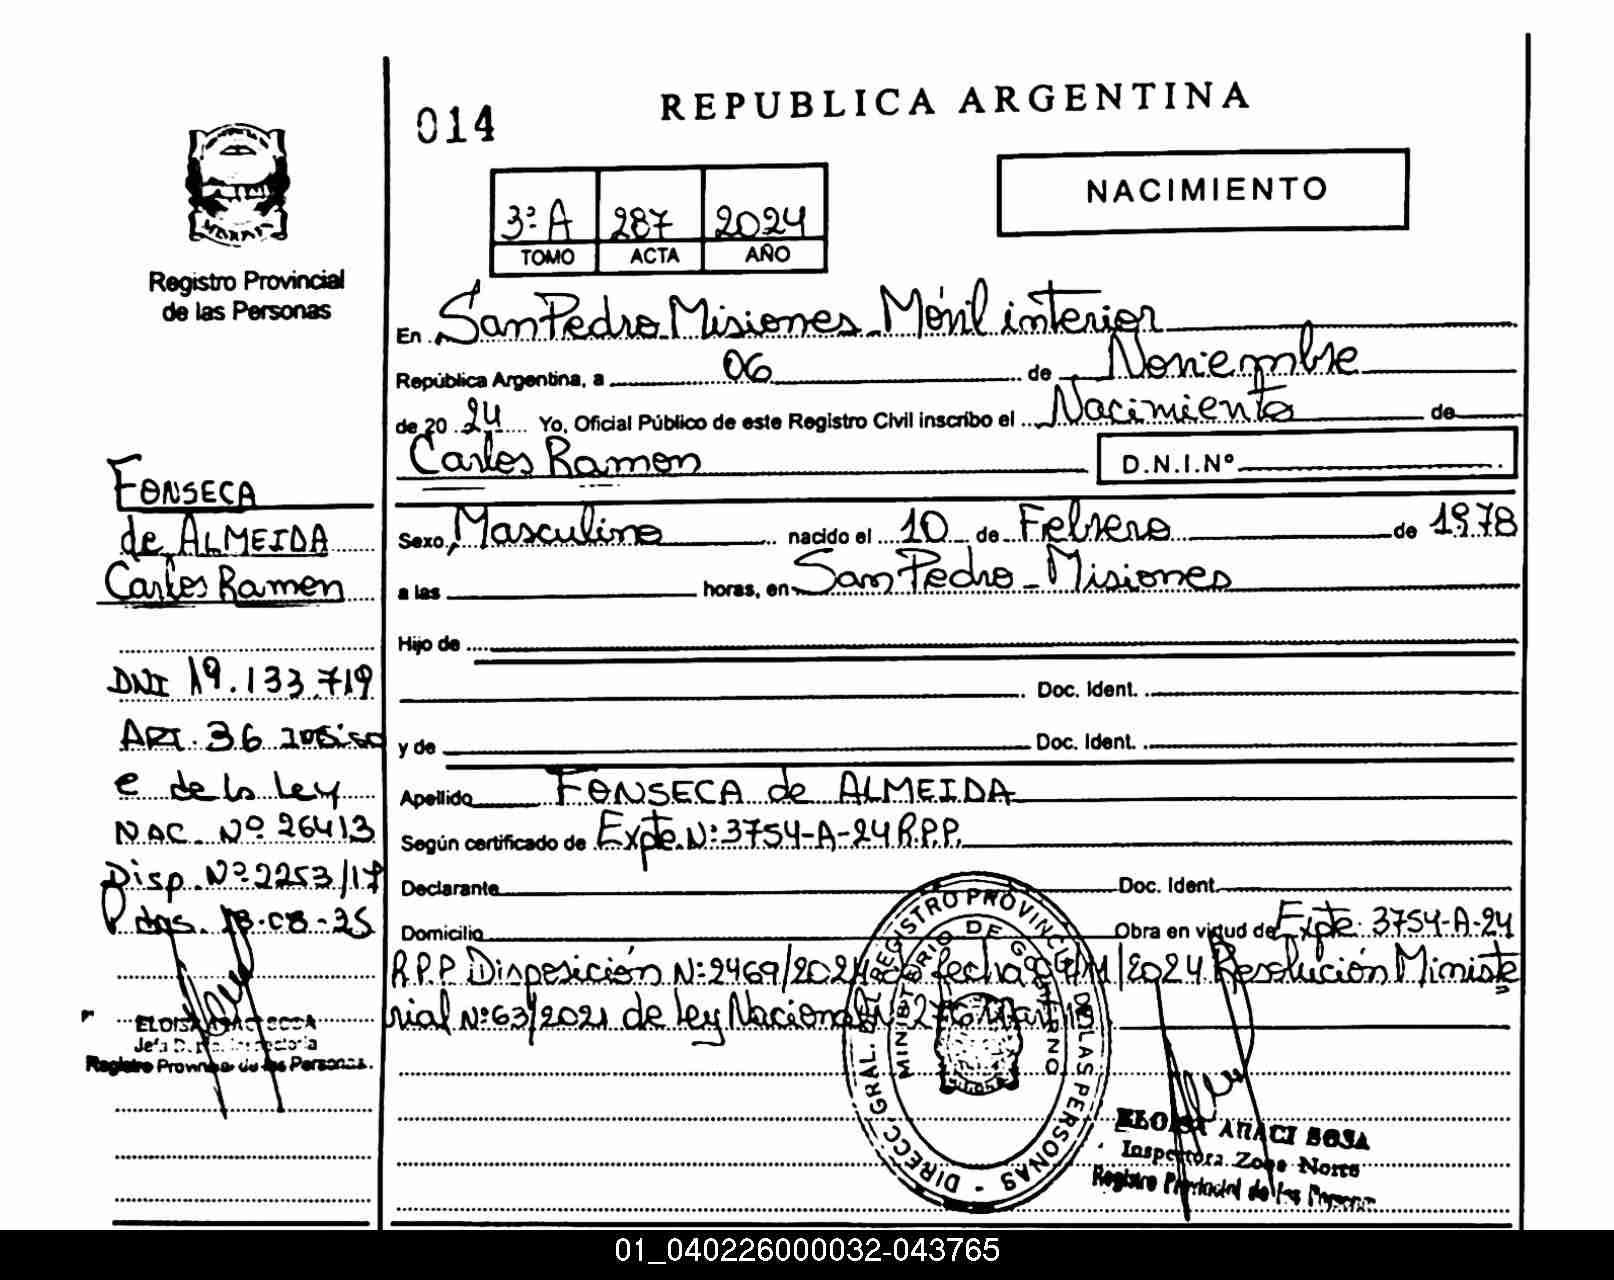 014
REPUBLICA ARGENTINA
NACIMIENTO
3ª A 287 2024
TOMO ACTA AÑO
Registro Provincial
de las Personas
En San Pedro Misiones Móvil interior
República Argentina, a 06 de Noviembre
de 20 24 Yo, Oficial Público de este Registro Civil inscribo el Nacimiento de
Carlos Ramon D.N.I.Nº
Sexo Masculino nacido el 10 de Febrero de 1978
a las horas, en San Pedro - Misiones
Hijo de
Doc. Ident.
y de Doc. Ident.
Apellido FONSECA de ALMEIDA
Según certificado de Expte. Nº 3754-A-24 R.P.P.
Declarante Doc. Ident.
Domicilio Obra en virtud de Expte 3754-A-24
R.P.P Disposición Nº 2469/2024 de fecha /2024 Resolución Ministe
rial Nº 63/2021 de Ley Nacional
FONSECA
de ALMEIDA
Carlos Ramon
DNI 19.133.719
ART. 36 inciso
e de la Ley
NAC. Nº 26413
Disp. Nº 2253/17
ELOISA ARACI SOSA
Registro Provincial de las Personas
DIRECC. GRAL. DEL REGISTRO PROVINCIAL DE LAS PERSONAS
MINISTERIO DE GOBIERNO
ELOISA ARACI SOSA
Inspectora Zona Norte
Registro Provincial de las Personas
01_040226000032-043765